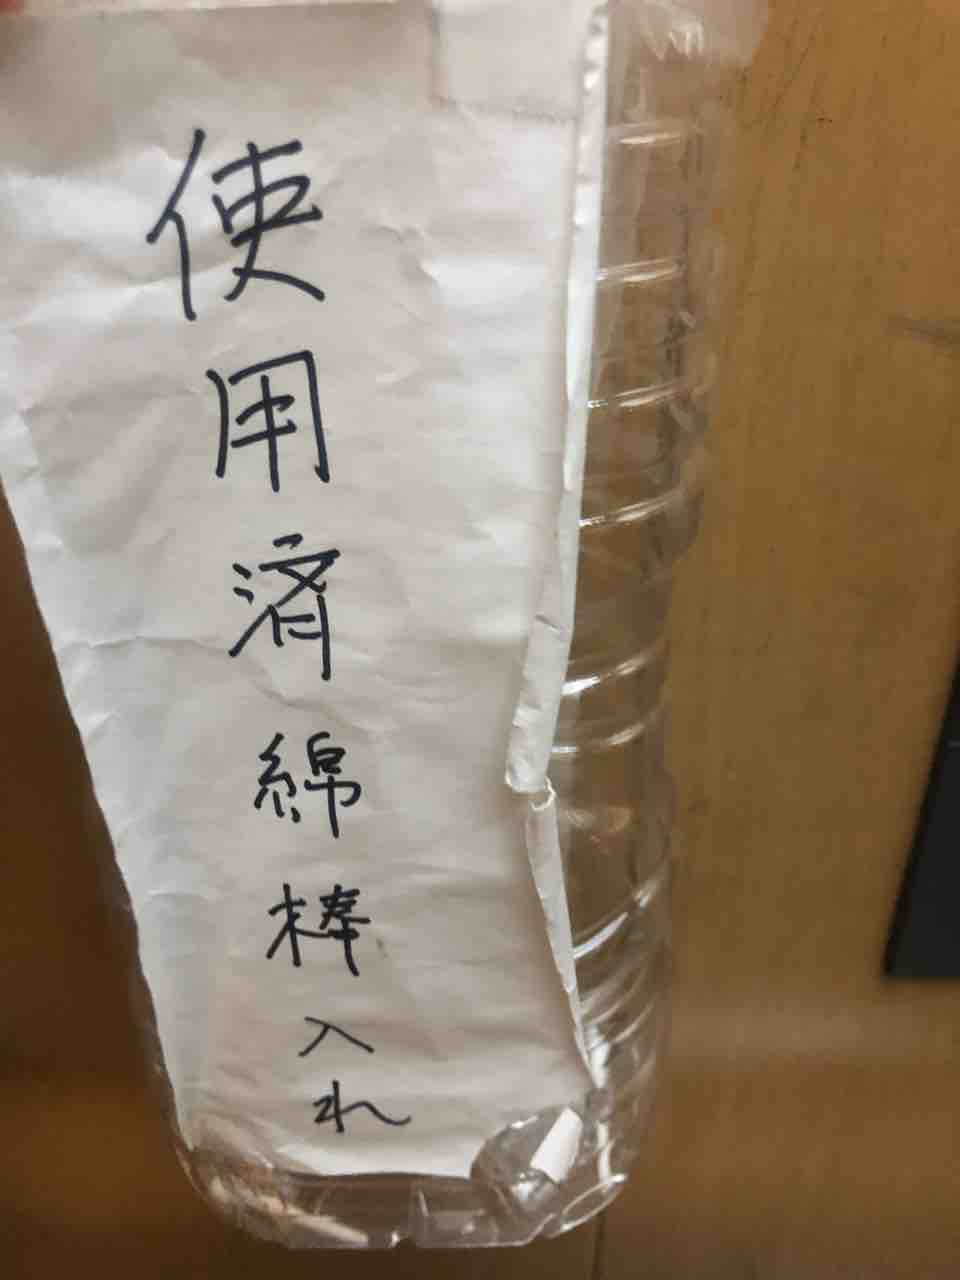 使用済綿棒入れ